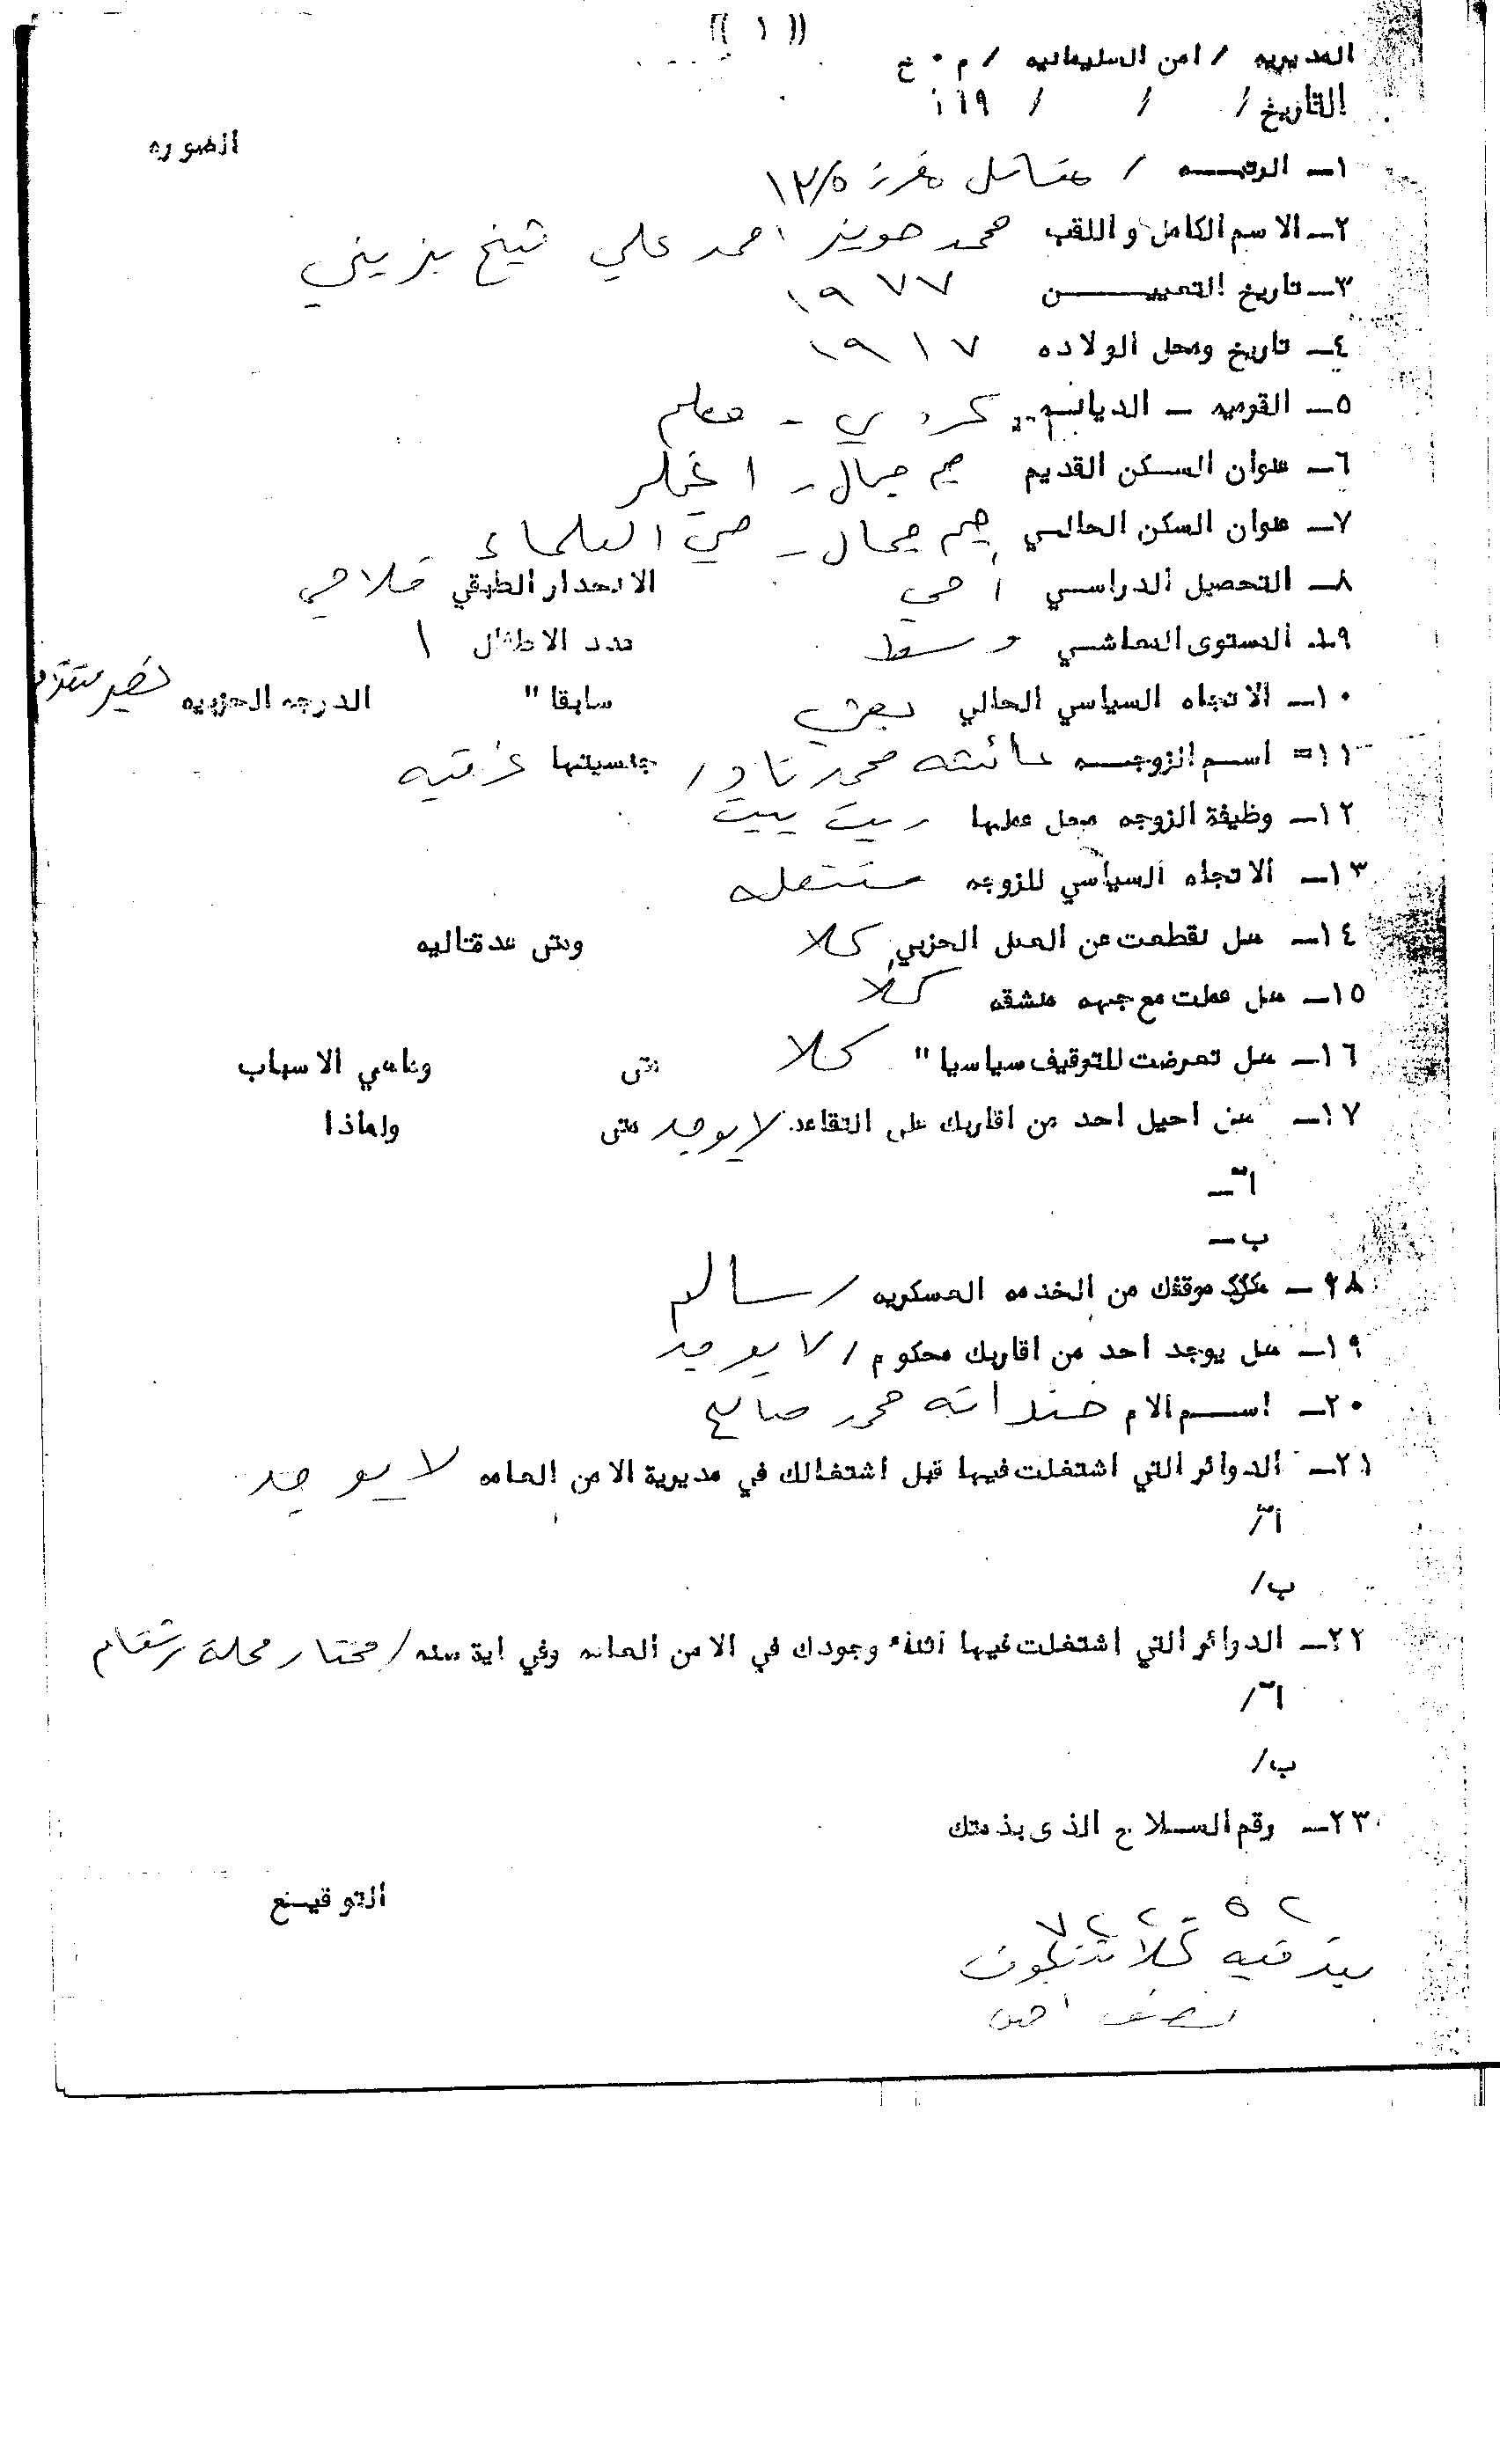 (( ١ ))
المديريه / امن السليمانيه / م٠خ
التاريخ / / / ١٩
الصوره
١ــ الرتبـــه / مقاتل مفرزة ١٣/٥
٢ــ الاسم الكامل واللقب محمد حويز احمد علي شيخ بزيني
٣ــ تاريخ التعييـــــن ١٩٧٧
٤ــ تاريخ ومحل الولاده ١٩١٧
٥ــ القوميه ــ الديانه كردي - مسلم
٦ــ عنوان السكن القديم جم جمال -
٧ــ عنوان السكن الحالي جم جمال - حي العلماء
٨ــ التحصيل الدراسي أمي الانحدار الطبقي فلاحي
٩ــ المستوى المعاشي وسط عدد الاطفال ١
١٠ــ الاتجاه السياسي الحالي بعثي سابقا" الدرجه الحزبيه نصير متقدم
١١= اسم الزوجـــه عائشه محمد نادر جنسيتها عراقيه
١٢ــ وظيفة الزوجه محل عملها ربت بيت
١٣ــ الاتجاه السياسي للزوجه مستقله
١٤ــ هل نقطعت عن العمل الحزبي كلا ومتى عدة تاليه
١٥ــ هل عملت مع جهه منشقه كلا
١٦ــ هل تعرضت للتوقيف سياسيا" كلا متى وماهي الاسباب
١٧ــ هل احيل احد من اقاربك على التقاعد لا يوجد متى ولماذا
اّــ
ب ــ
١٨ــ موقفك من الخدمه العسكريه / سالم
١٩ــ هل يوجد احد من اقاربك محكوم / لا يوجد
٢٠ــ اســـم الام محمد صالح
٢١ــ الدوائر التي اشتغلت فيها قبل اشتغالك في مديرية الامن العامه لا يوجد
اّ/
ب/
٢٢ــ الدوائر التي اشتغلت فيها اثناء وجودك في الامن العامه وفي اية سنه / مختار محلة
اّ/
ب/
٢٣ــ رقم السلاح الذى بذمتك
التوقيـــع
بندقيه كلاشنكوف
نصف اخمص